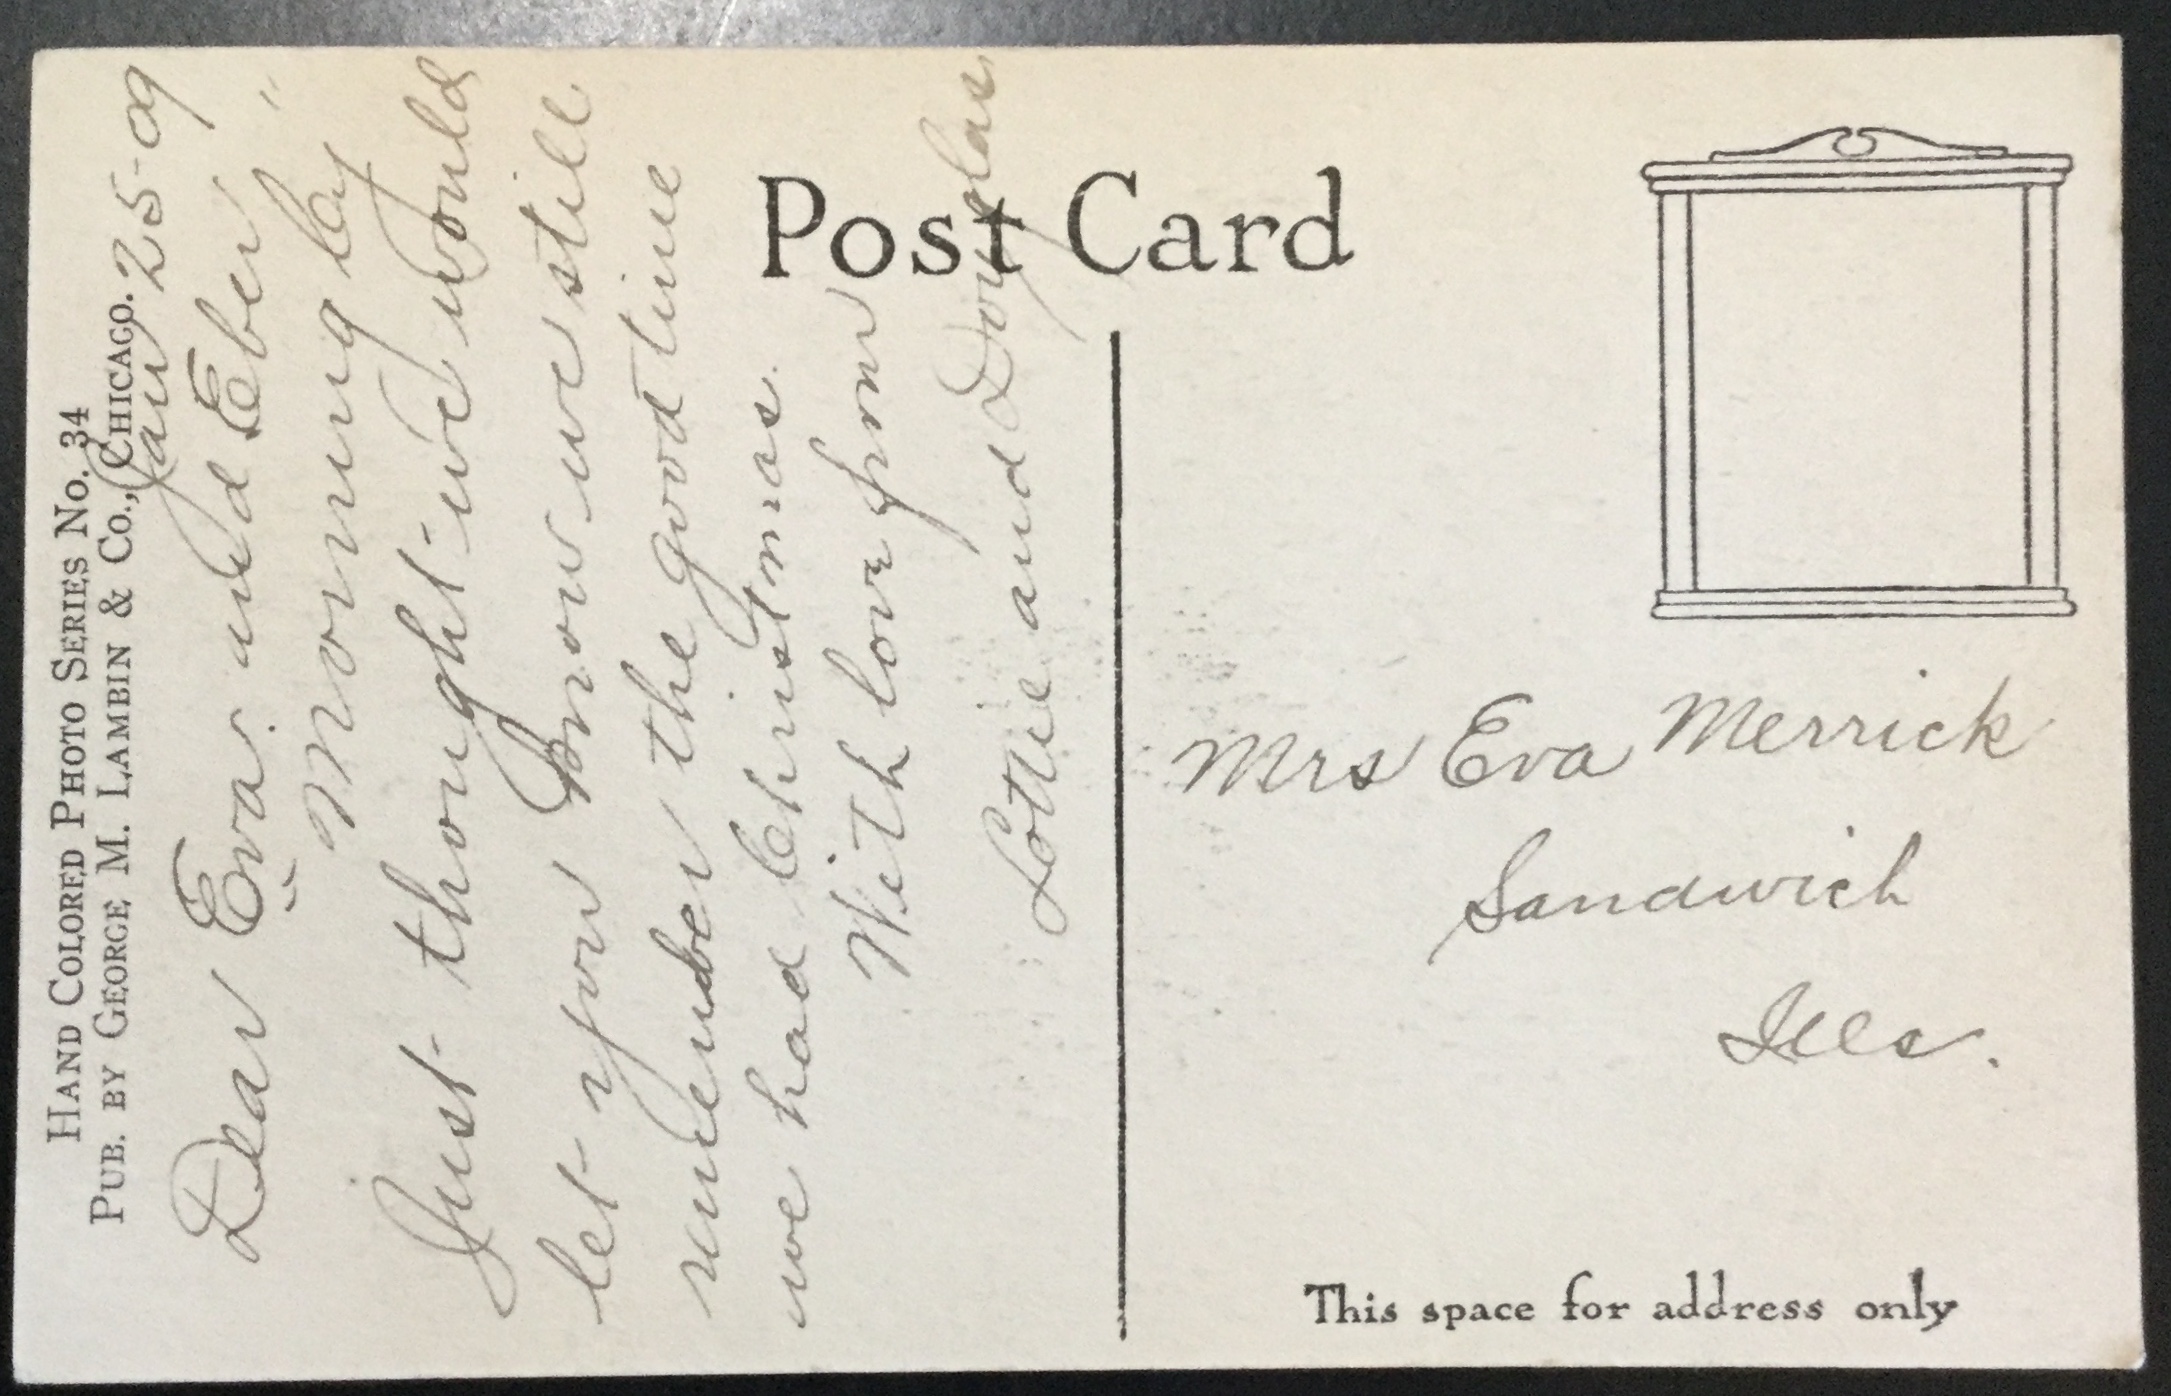 Hand Colored Photo Series No. 34
Pub. by George M. Lambin & Co., Chicago.
Jan 25-09
Dear Eva and Eber
Morning by
Just thought we would
let you know we still
remember the good time
we had Christmas.
With love from
Lottie and Douglas
Post Card
Mrs Eva Merrick
Sandwich
Ills.
This space for address only